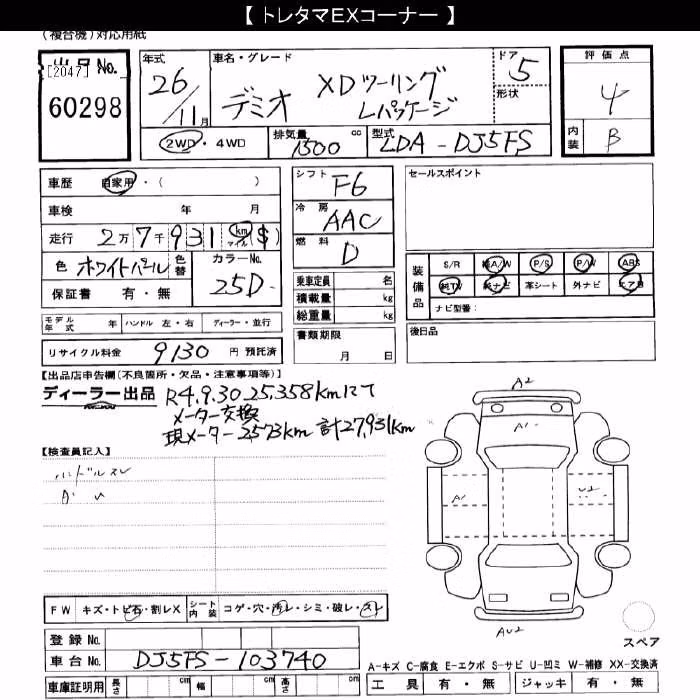 【 トレタマEXコーナー 】
(複合機)対応用紙
出品 No.
[2047]
60298
年式
26/11月
車名・グレード
デミオ XDツーリング
Lパッケージ
ドア
5
形状
評価点
4
内装
B
2WD・4WD
排気量 1500 cc
型式 LDA-DJ5FS
車歴 自家用・( )
車検 年 月
走行 2万7千931 km マイル ($)
色 ホワイトパール 色替
カラーNo.
25D
保証書 有・無
シフト F6
冷房 AAC
燃料 D
乗車定員 名
積載量 kg
総重量 kg
セールスポイント
装備品
S/R 純A/W P/S P/W ABS
純TV 純ナビ 革シート 外ナビ エアB
ナビ型番:
モデル年式 年 ハンドル 左・右 ディーラー・並行
リサイクル料金 9130 円 預託済
書類期限
月 日
後日品
【出品店申告欄(不良箇所・欠品・注意事項等)】
ディーラー出品 R4.9.30 25,358kmにて
メーター交換
現メーター2573km 計27,931km
【検査員記入】
ハンドルスレ
A2
A1
A1
U2
AU2
スペア
FW キズ・トビ石・割レX シート内装 コゲ・穴・汚レ・シミ・破レ・スレ
登録 No.
車台 No. DJ5FS-103740
車庫証明用 長さ cm 幅 cm 高さ cm
A-キズ C-腐食 E-エクボ S-サビ U-凹ミ W-補修 XX-交換済
工具 有・無 ジャッキ 有・無